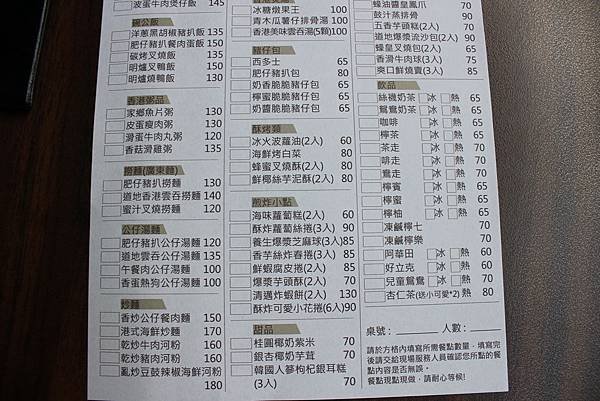 波蛋牛肉煲仔飯 145
碟公飯
洋蔥黑胡椒豬扒飯 135
肥仔豬扒餐肉蛋飯 150
碳烤叉燒飯 135
明爐叉鴨飯 150
明爐燒鴨飯 130
香港粥品
家鄉魚片粥 130
皮蛋瘦肉粥 130
滑蛋牛肉丸粥 120
香菇滑雞粥 135
撈麵(廣東麵)
肥仔豬扒撈麵 130
道地香港雲吞撈麵 140
蜜汁叉燒撈麵 120
公仔湯麵
肥仔豬扒公仔湯麵 120
道地雲吞公仔湯麵 135
午餐肉公仔湯麵 100
香蛋熱狗公仔湯麵 100
炒麵
香炒公仔餐肉麵 150
港式海鮮炒麵 170
乾炒牛肉河粉 160
乾炒豬肉河粉 160
亂炒豆鼓辣椒海鮮河粉
180
冰糖燉果王 100
青木瓜薯仔排骨湯 100
香港美味雲吞湯(5顆)100
豬仔包
西多士 65
肥仔豬扒包 80
奶香脆脆豬仔包 65
檸蜜脆脆豬仔包 65
奶醬脆脆豬仔包 65
酥烤類
冰火波蘿油(2人) 60
海鮮烤白菜 80
蜂蜜叉燒酥(2人) 80
鮮椰絲芋泥酥(2人) 80
煎炸小點
海味蘿蔔糕(2人) 60
酥炸蘿蔔絲捲(3人) 90
養生爆漿芝麻球(3人)85
香芋絲炸春捲(3人) 85
鮮蝦腐皮捲(2人) 85
爆漿芋頭酥(2人) 70
清邁炸蝦餅(2人) 130
酥炸可愛小花捲(6人)90
甜品
桂圓椰奶紫米 70
銀杏椰奶芋茸 70
韓國人蔘枸杞銀耳糕
(3人) 70
蜂油醬皇鳳爪 70
鼓汁蒸排骨 90
五香芋頭糕(2人) 70
道地爆漿流沙包(2人) 90
蠔皇叉燒包(2人) 60
香滑牛肉球(3人) 75
爽口鮮燒賣(3人) 85
飲品
絲襪奶茶 冰 熱 65
鴛鴦奶茶 冰 熱 65
咖啡 冰 熱 65
檸茶 冰 熱 65
茶走 冰 熱 70
啡走 冰 熱 70
鴦走 冰 熱 70
檸賓 冰 熱 65
檸蜜 冰 熱 65
檸柚 冰 熱 65
凍鹹檸七 70
凍鹹檸樂 70
阿華田 冰 熱 60
好立克 冰 熱 60
兒童鴛鴦 冰 熱 60
杏仁茶(送小可愛*2) 熱 80
桌號: 人數:
請於方格內填寫所需餐點數量,填寫完
後請交給現場服務人員確認您所點的餐
點內容是否無誤。
餐點現點現做,請耐心等候!